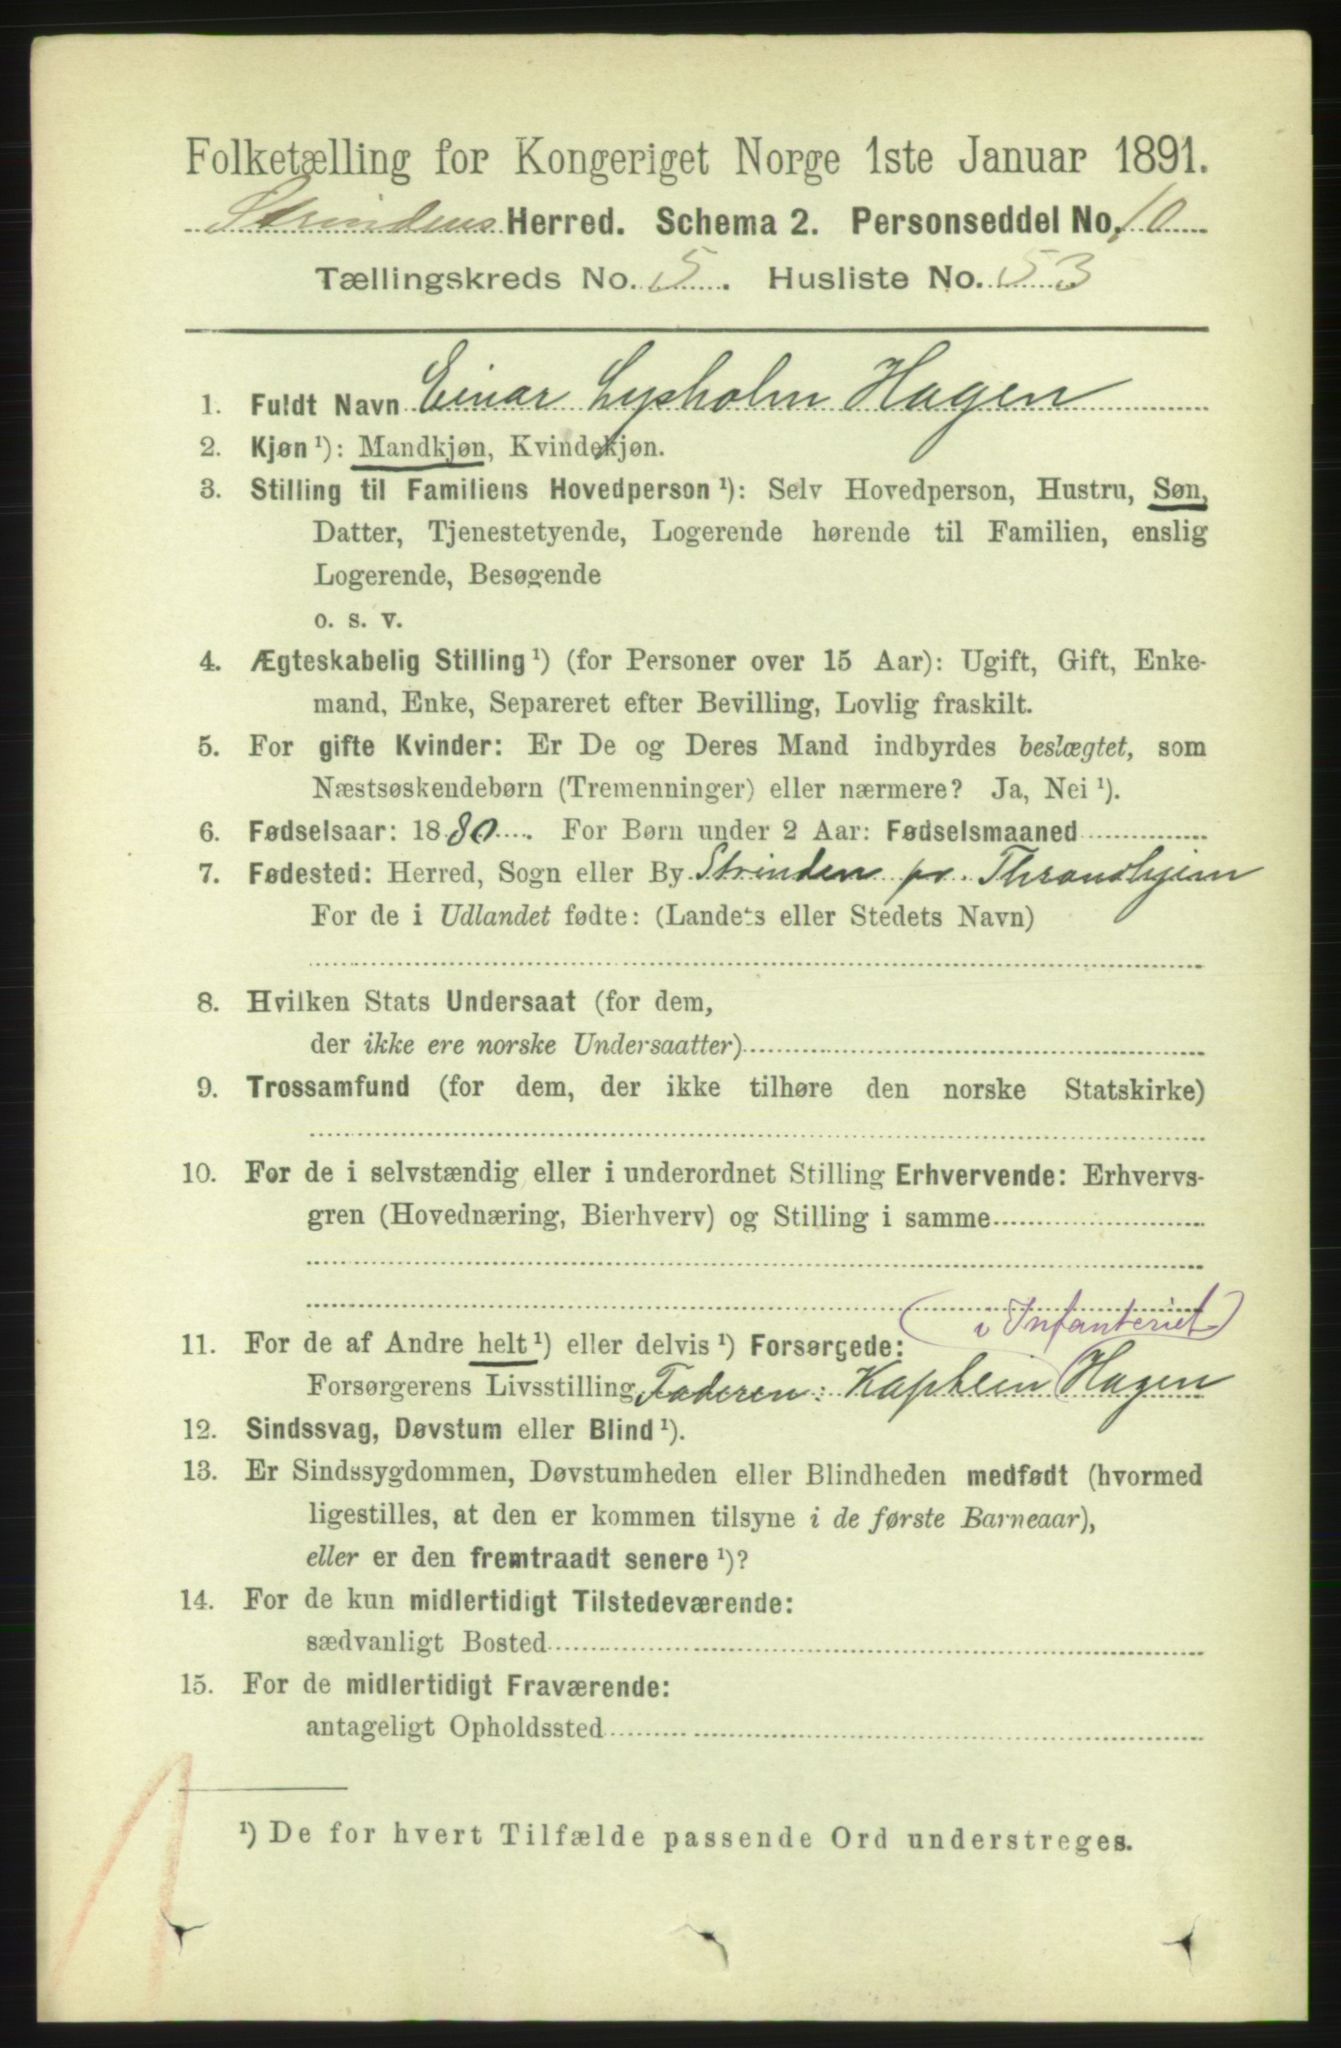 Folketælling for Kongeriget Norge 1ste Januar 1891.
Strindens Herred. Schema 2. Personseddel No. 10
Tællingskreds No. 5. Husliste No. 53
1. Fuldt Navn Einar Lysholm Hagen
2. Kjøn ¹): Mandkjøn, Kvindekjøn.
3. Stilling til Familiens Hovedperson ¹): Selv Hovedperson, Hustru, Søn,
Datter, Tjenestetyende, Logerende hørende til Familien, enslig
Logerende, Besøgende
o. s. v.
4. Ægteskabelig Stilling ¹) (for Personer over 15 Aar): Ugift, Gift, Enke-
mand, Enke, Separeret efter Bevilling, Lovlig fraskilt.
5. For gifte Kvinder: Er De og Deres Mand indbyrdes beslægtet, som
Næstsøskendebørn (Tremenninger) eller nærmere? Ja, Nei ¹).
6. Fødselsaar: 1880. For Børn under 2 Aar: Fødselsmaaned
7. Fødested: Herred, Sogn eller By Strinden pr. Throndhjem
For de i Udlandet fødte: (Landets eller Stedets Navn)
8. Hvilken Stats Undersaat (for dem,
der ikke ere norske Undersaatter)
9. Trossamfund (for dem, der ikke tilhøre den norske Statskirke)
10. For de i selvstændig eller i underordnet Stilling Erhvervende: Erhvervs-
gren (Hovednæring, Bierhverv) og Stilling i samme
i Infanteriet
11. For de af Andre helt ¹) eller delvis ¹) Forsørgede:
Forsørgerens Livsstilling Faderen: Kaptein Hagen
12. Sindssvag, Døvstum eller Blind ¹).
13. Er Sindssygdommen, Døvstumheden eller Blindheden medfødt (hvormed
ligestilles, at den er kommen tilsyne i de første Barneaar),
eller er den fremtraadt senere ¹)?
14. For de kun midlertidigt Tilstedeværende:
sædvanligt Bosted
15. For de midlertidigt Fraværende:
antageligt Opholdssted
¹) De for hvert Tilfælde passende Ord understreges.